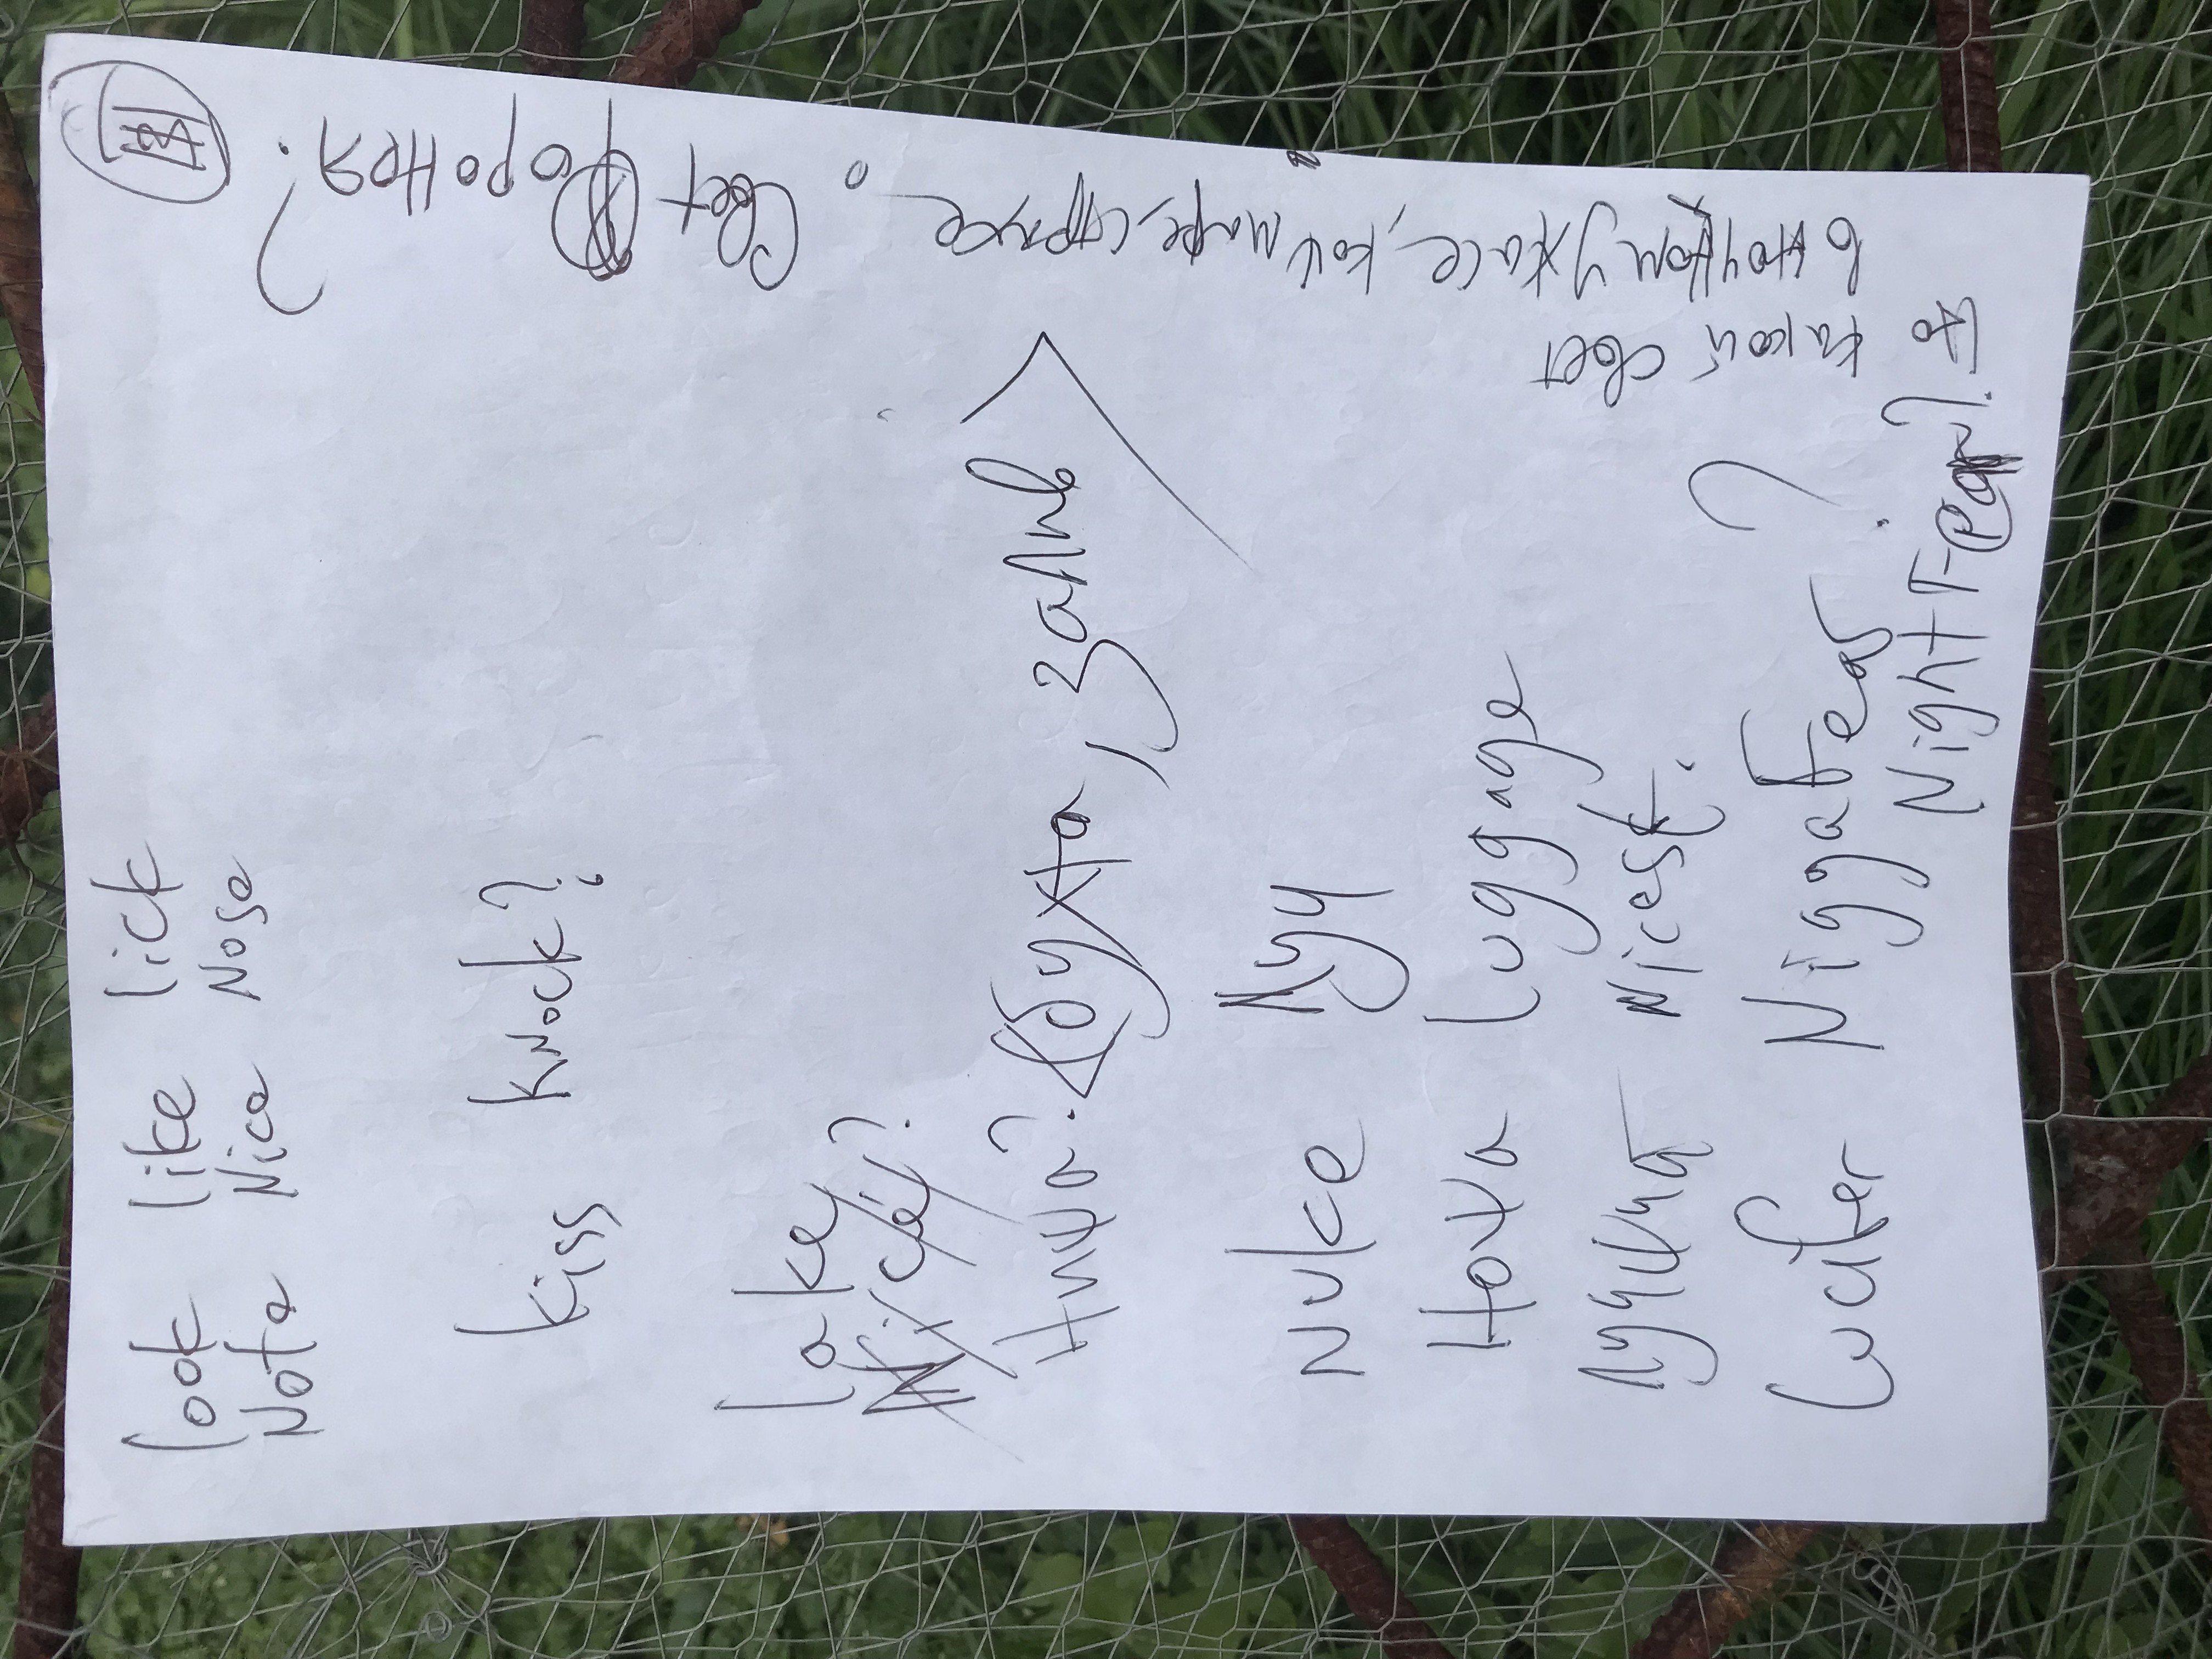 look like lick
Note Nice Nose
kiss knock?
lake
Nice?
Ниѱа? (бухта, залив)
Nuke Луч
Ноѱа luggage
Nicest.
Lucifer NiggaFear?
NightFear?
Но какой свет
в ночном ужасе, коѱмаре, страхе.
Свет Фороնея?